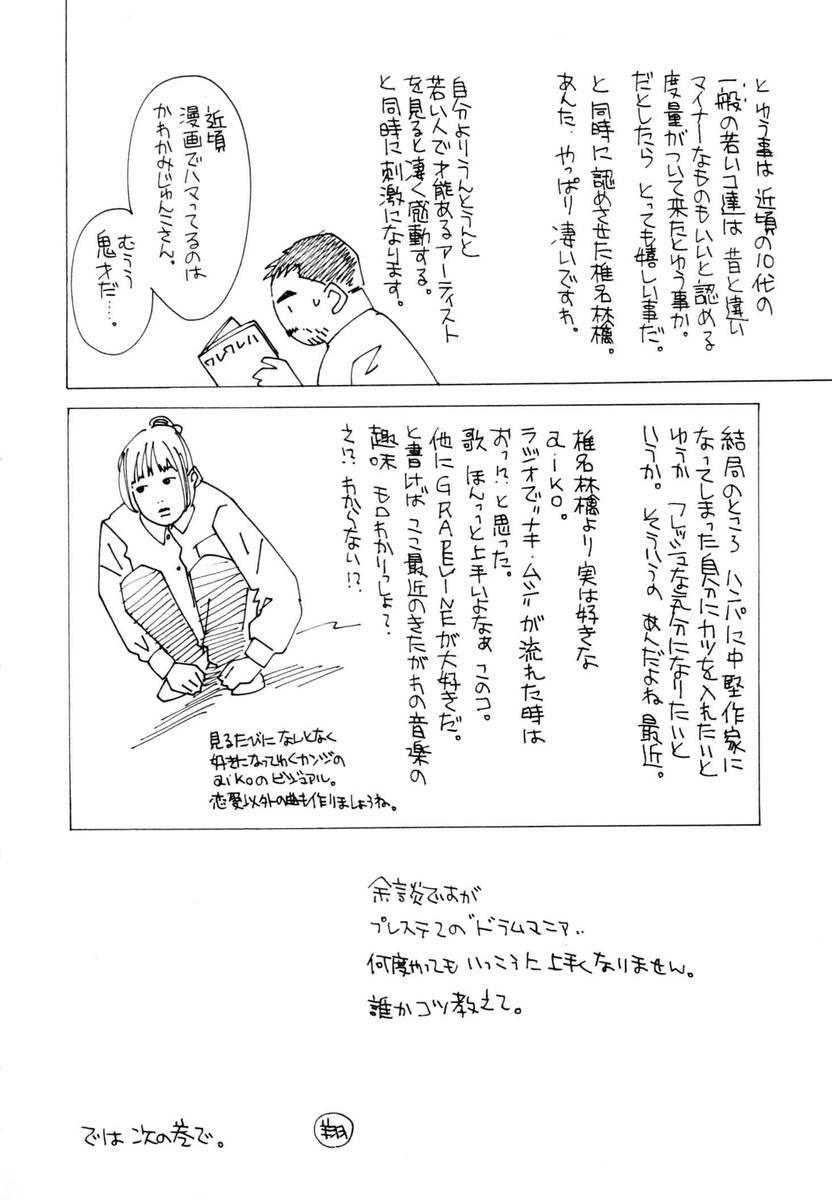 とゆう事は 近頃の10代の
一般の若いコ達は 昔と違い
マイナーなものもいいと認める
度量がついて来たとゆう事か。
だとしたら とっても嬉しい事だ。
と同時に認めさせた椎名林檎。
あんた、やっぱり凄いですわ。
自分よりうんとうんと
若い人で才能あるアーティスト
を見ると凄く感動する。
と同時に刺激になります。
近頃
漫画でハマってるのは
かわかみじゅんこさん。
むうう
鬼才だ……。
ワレワレハ
結局のところ ハンパに中堅作家に
なってしまった自分にカツを入れたいと
ゆうか フレッシュな気分になりたいと
いうか。そういうの あんだよね 最近。
椎名林檎より 実は好きな
aiko。
ラジオで"ナキ・ムシ"が流れた時は
おっ!?と思った。
歌 ほんっっと上手いよなぁ このコ。
他にGRAPEVINEが大好きだ。
と書けば ここ最近のきたがわの音楽の
趣味 モロわかりっしょ?
え!?わからない!?
見るたびに なんとなく
好きになってゆくカンジの
aikoのビジュアル。
恋愛以外の曲も作りましょうね。
余談ですが
プレステ2の"ドラムマニア"
何度やっても いっこうに上手くなりません。
誰かコツ教えて。
では 次の巻で。
翔